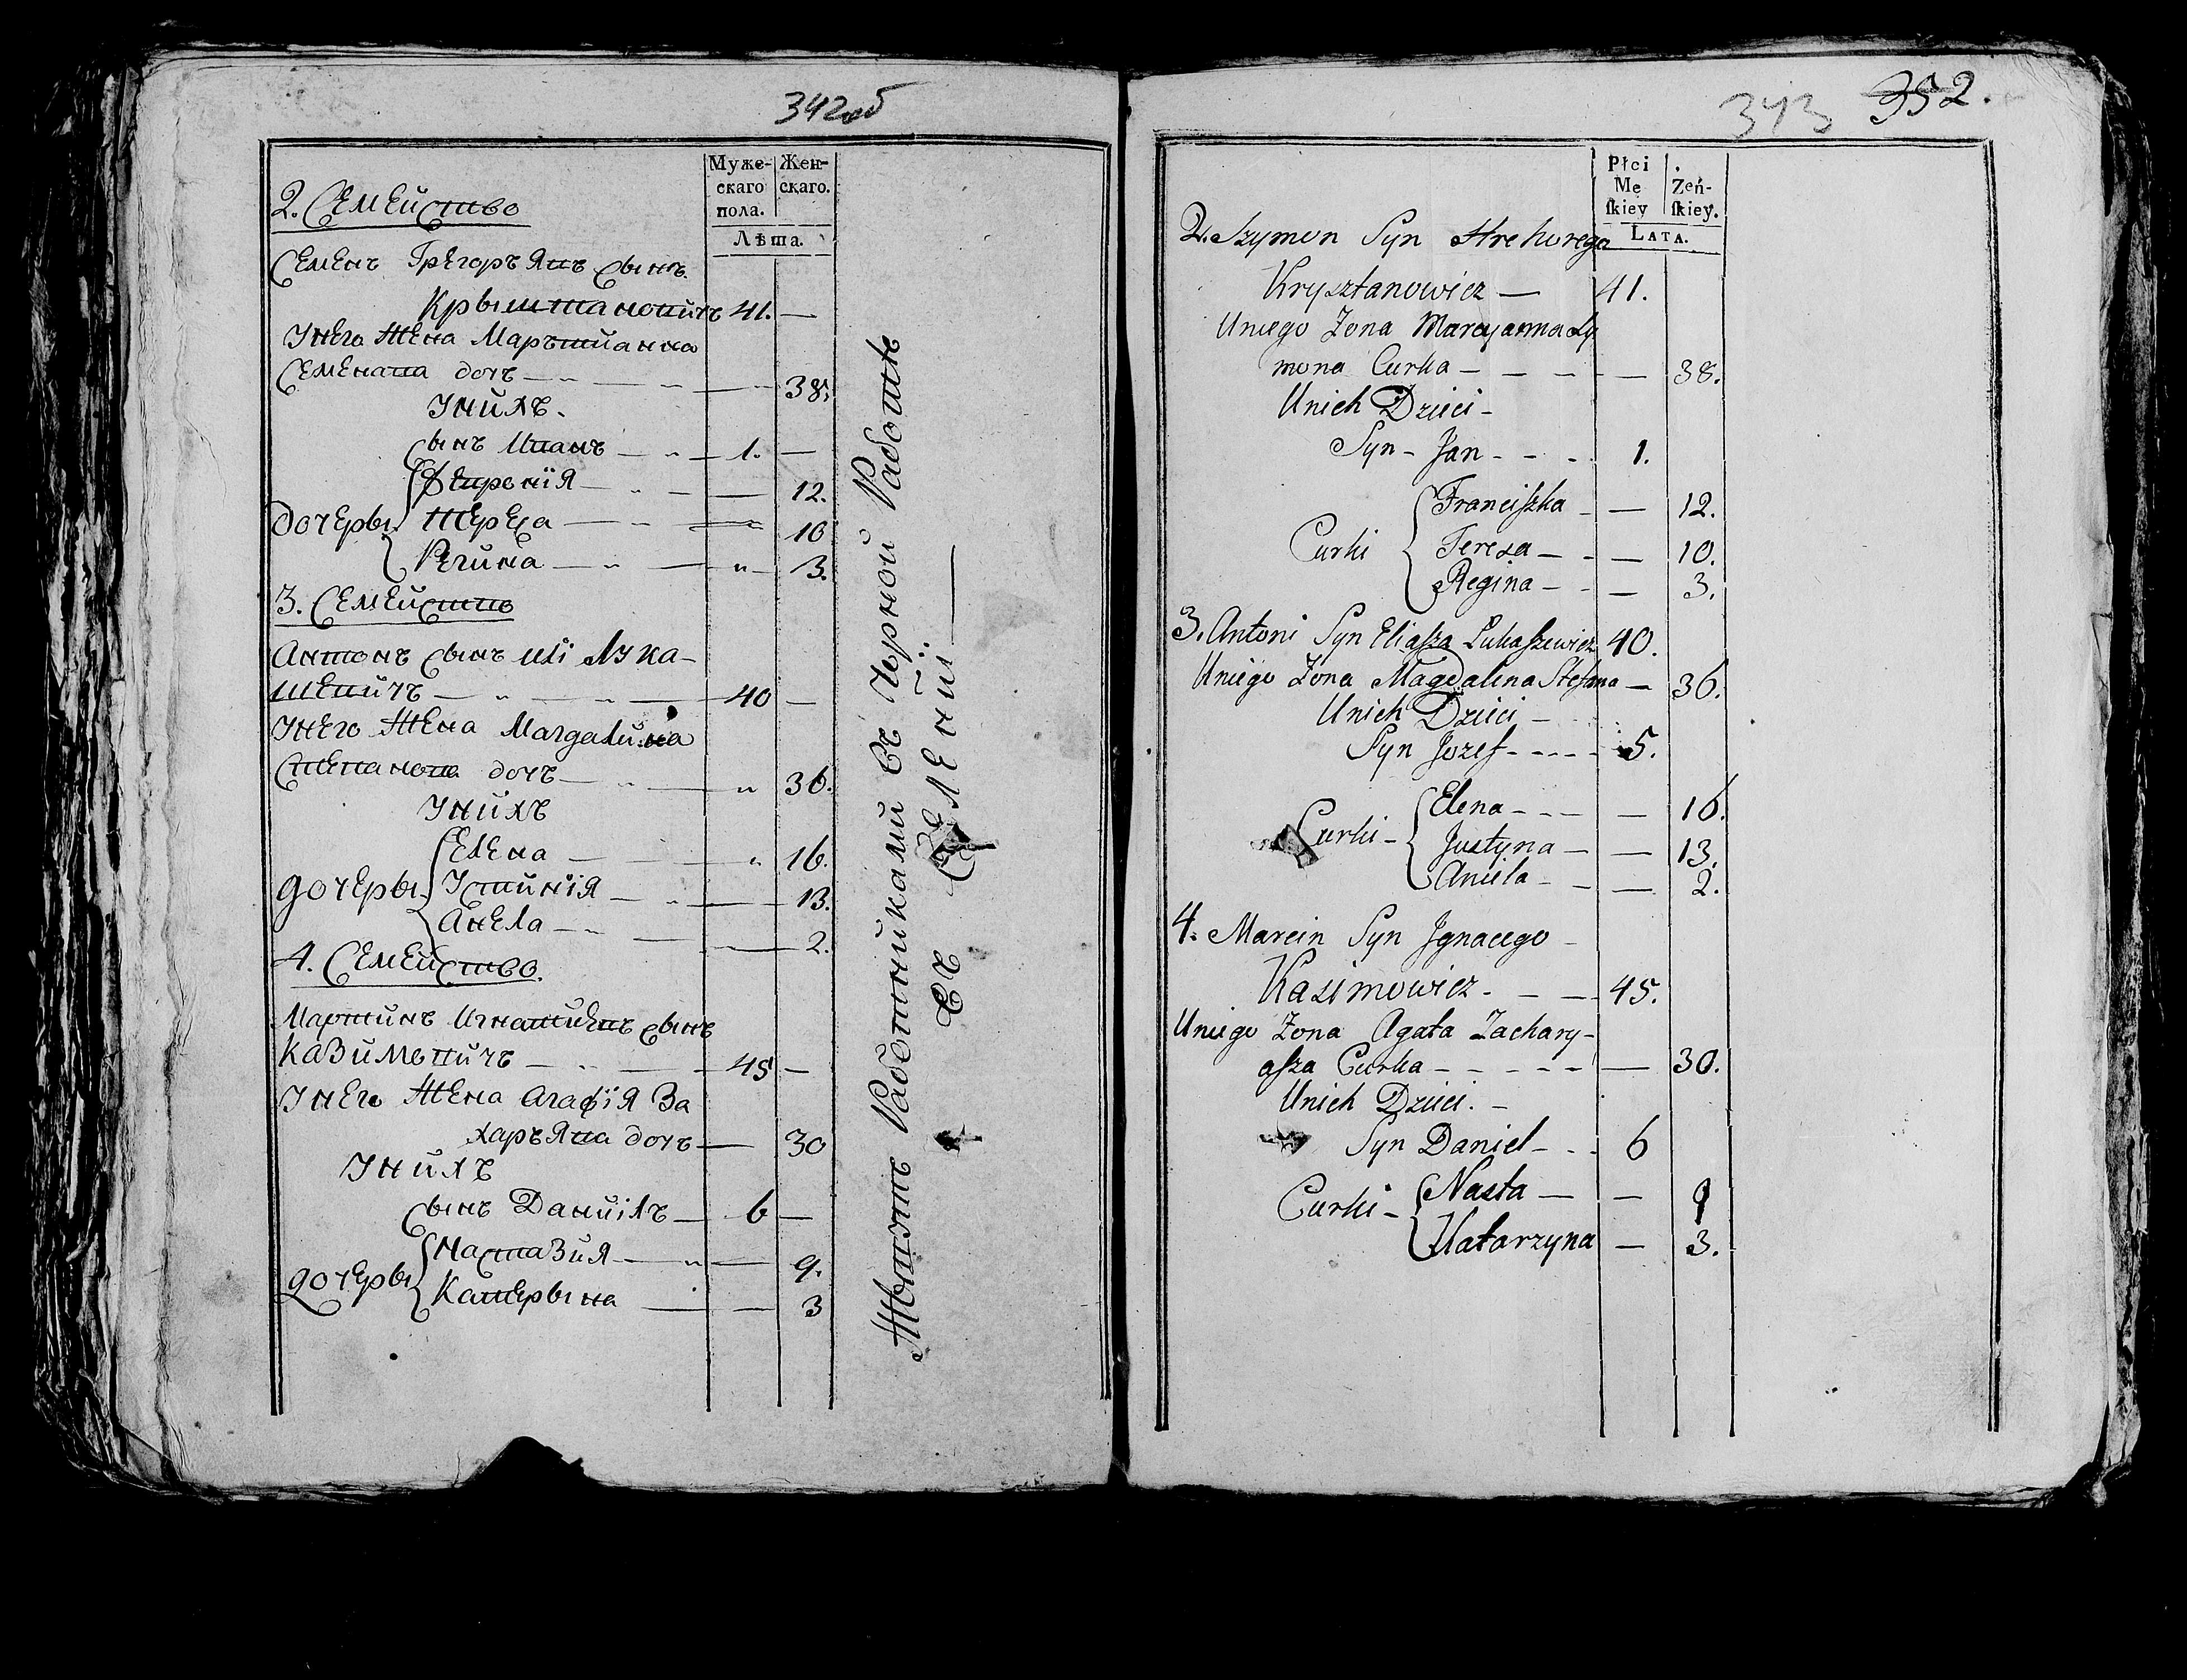 342об
Муже-
скаго
пола.
Жен-
скаго.
Лѣта.
2. Семейство
Семенъ Грегоръявъ сынъ
Крыштановичъ 41. —
Унего жена Маръцианна
Семенава дочъ — 38.
Унихъ.
сынъ Иванъ — 1. —
дочеры
Фвронія — 12.
Тереса — 10
Регина — 3.
3. Семейство
Антонъ сынъ илі Лука-
шевичъ — 40 —
Унего жена Магдалина
Степанова дочъ — 36.
Унихъ
дочеры
Елена — 16.
Устинія — 13.
Анела — 2.
4. Семейство.
Мартинъ Игнатиевъ сынъ
Казимовичъ — 45 —
Унего жена Агафія За
харъява дочъ — 30
Унихъ
сынъ Даниілъ — 6 —
дочеры
Настазия — 9.
Катерына — 3
Живутъ Работниками въ Чорной Работѣ
въ Селеніи —
343 352.
Płci
Mę
skiey
Żeń-
skiey.
LATA.
2. Szymon Syn Hrehorego
Krysztanowicz — 41.
Uniego Żona Marcyanna Sy
mona Curka — 38.
Unich Dzieci -
Syn - Jan - - - 1.
Curki
Franciszka - — 12.
Teresa — - — 10.
Regina — - — 3.
3. Antoni Syn Eliasza Łukaszewicz 40.
Uniego Żona Magdalina Stefana — 36.
Unich Dzieci -
Syn Jozef - - - - 5.
Curki -
Elena - - - — 16.
Justyna — — 13.
Aniela - - — 2.
4. Marcin Syn Jgnacego -
Kazimowicz - — — 45.
Uniego Żona Agata Zachary-
asza Curka - - - - - — 30.
Unich Dzieci. -
Syn Daniel - - - 6
Curki -
Nasta — — 9
Katarzyna — 3.